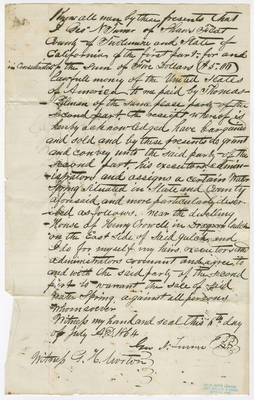 Know all men by these presents That
I Geo N Turner of Shaws Flat
County of Tuolumne and State of
California of the first part for and
in Consideration of the Sum of Five Dollars ($5.00)
Lawful money of the United States
of America to me paid by Thomas
of the same place party of the
Second part the receipt whereof is
hereby acknowledged have bargained
and sold and by these presents do grant
and convey unto the said party of the
second part his executors admin-
istrators and assigns a certain Water
Spring Situated in State and County
aforesaid and more particularly descr-
ibed as follows. near the dwelling
House of Henry Crowell in Dragoon Gulch
on the East Side of Said Gulch and
I do for myself my heirs executors
administrators covenant and agree to
and with the said party of the second
part to warrant the sale of said
water Spring against all persons
whomsoever
Witness my hand and seal this day
of July A.D. 1864
Geo N. Turner
Witness G. H. Morton